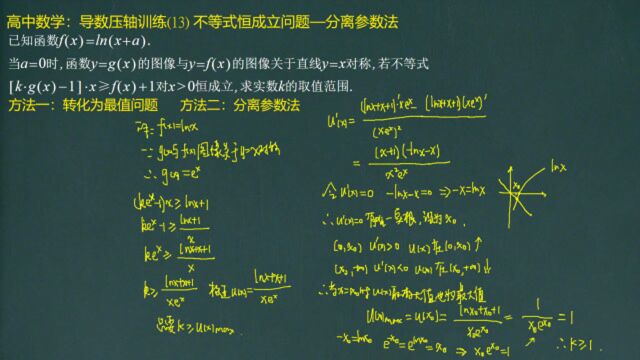 高中数学：导数压轴训练(13) 不等式恒成立问题—分离参数法
已知函数f(x)=ln(x+a).
当a=0时,函数y=g(x)的图像与y=f(x)的图像关于直线y=x对称,若不等式
[k·g(x)−1]·x≥f(x)+1对x>0恒成立,求实数k的取值范围.
方法一：转化为最值问题 方法二：分离参数法
解: f(x)=lnx
∵ g(x)与f(x)图像关于y=x对称
∴ g(x)=e^x
(ke^x-1)x ≥ lnx+1
ke^x-1 ≥ (lnx+1)/x
ke^x ≥ (lnx+x+1)/x
k ≥ (lnx+x+1)/(xe^x) 构造u(x)= (lnx+x+1)/(xe^x)
只需 k≥u(x)max
u'(x)= [(lnx+x+1)'·xe^x - (lnx+x+1)(xe^x)']/(xe^x)²
= (x+1)(-lnx-x)/(x²e^x)
令u'(x)=0 -lnx-x=0 ⇒ -x=lnx
lnx
x₀
∴ u'(x)=0 有唯一实根, 设为x₀
(0,x₀) u'(x)>0 u(x)在(0,x₀)↑
(x₀,+∞) u'(x)<0 u(x)在(x₀,+∞)↓
∴ 当x=x₀时 u(x)取极大值也为最大值
u(x)max = u(x₀) = (lnx₀+x₀+1)/(x₀e^x₀) = 1/(x₀e^x₀) = 1
-x₀=lnx₀ e^-x₀=e^lnx₀=x₀ ⇒ x₀e^x₀=1 ∴ k≥1.